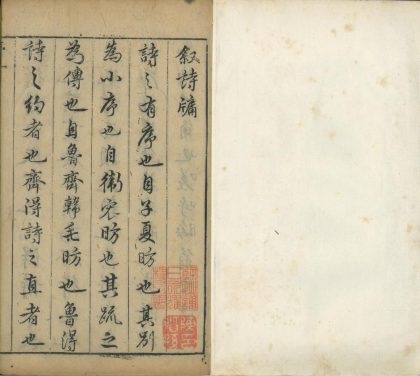 叙詩牖
詩之有序也自子夏昉也其別
為小序也自衛宏昉也其疏之
為傳也自魯齊韓毛昉也魯得
詩之約者也齊得詩之直者也